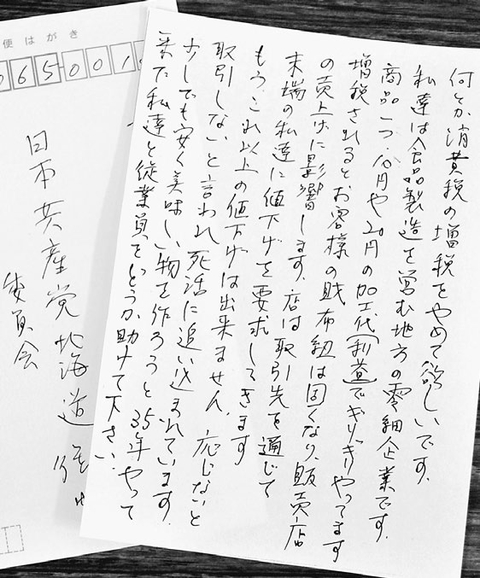 何とか消費税の増税をやめて欲しいです。
私達は食品製造を営む地方の零細企業です。
商品一つ、10円や20円の加工代(利益)でぎりぎりやってます
増税されるとお客様の財布紐は固くなり、販売店
の売上げに影響します。店は取引先を通じて
末端の私達に値下げを要求してきます
もう、これ以上の値下げは出来ません、応じないと
取引しないと言われ死活に追い込まれています。
少しでも安く美味しい物を作ろうと35年やって
来て私達と従業員をどうか助けて下さい。
便はがき
065001
日本共産党北海道
委員会